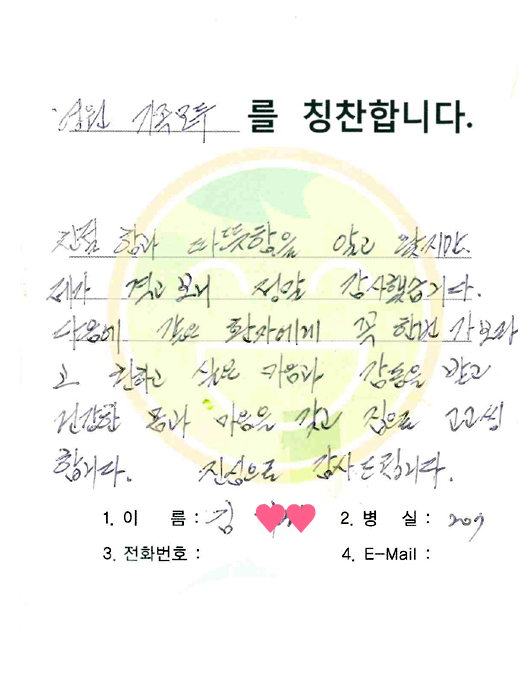 병원 가족모두 를 칭찬합니다.
친절 함과 따뜻함을 알고 왔지만.
제가 격고 보니 정말 감사했습니다.
다음에 같은 환자에게 꼭 한번 가보라
고 권하고 싶은 마음과 감동을 받고
건강한 몸과 마음을 갖고 집으로
합니다. 진심으로 감사드립니다.
1. 이 름 : 김 2. 병 실 : 207
3. 전화번호 : 4. E-Mail :